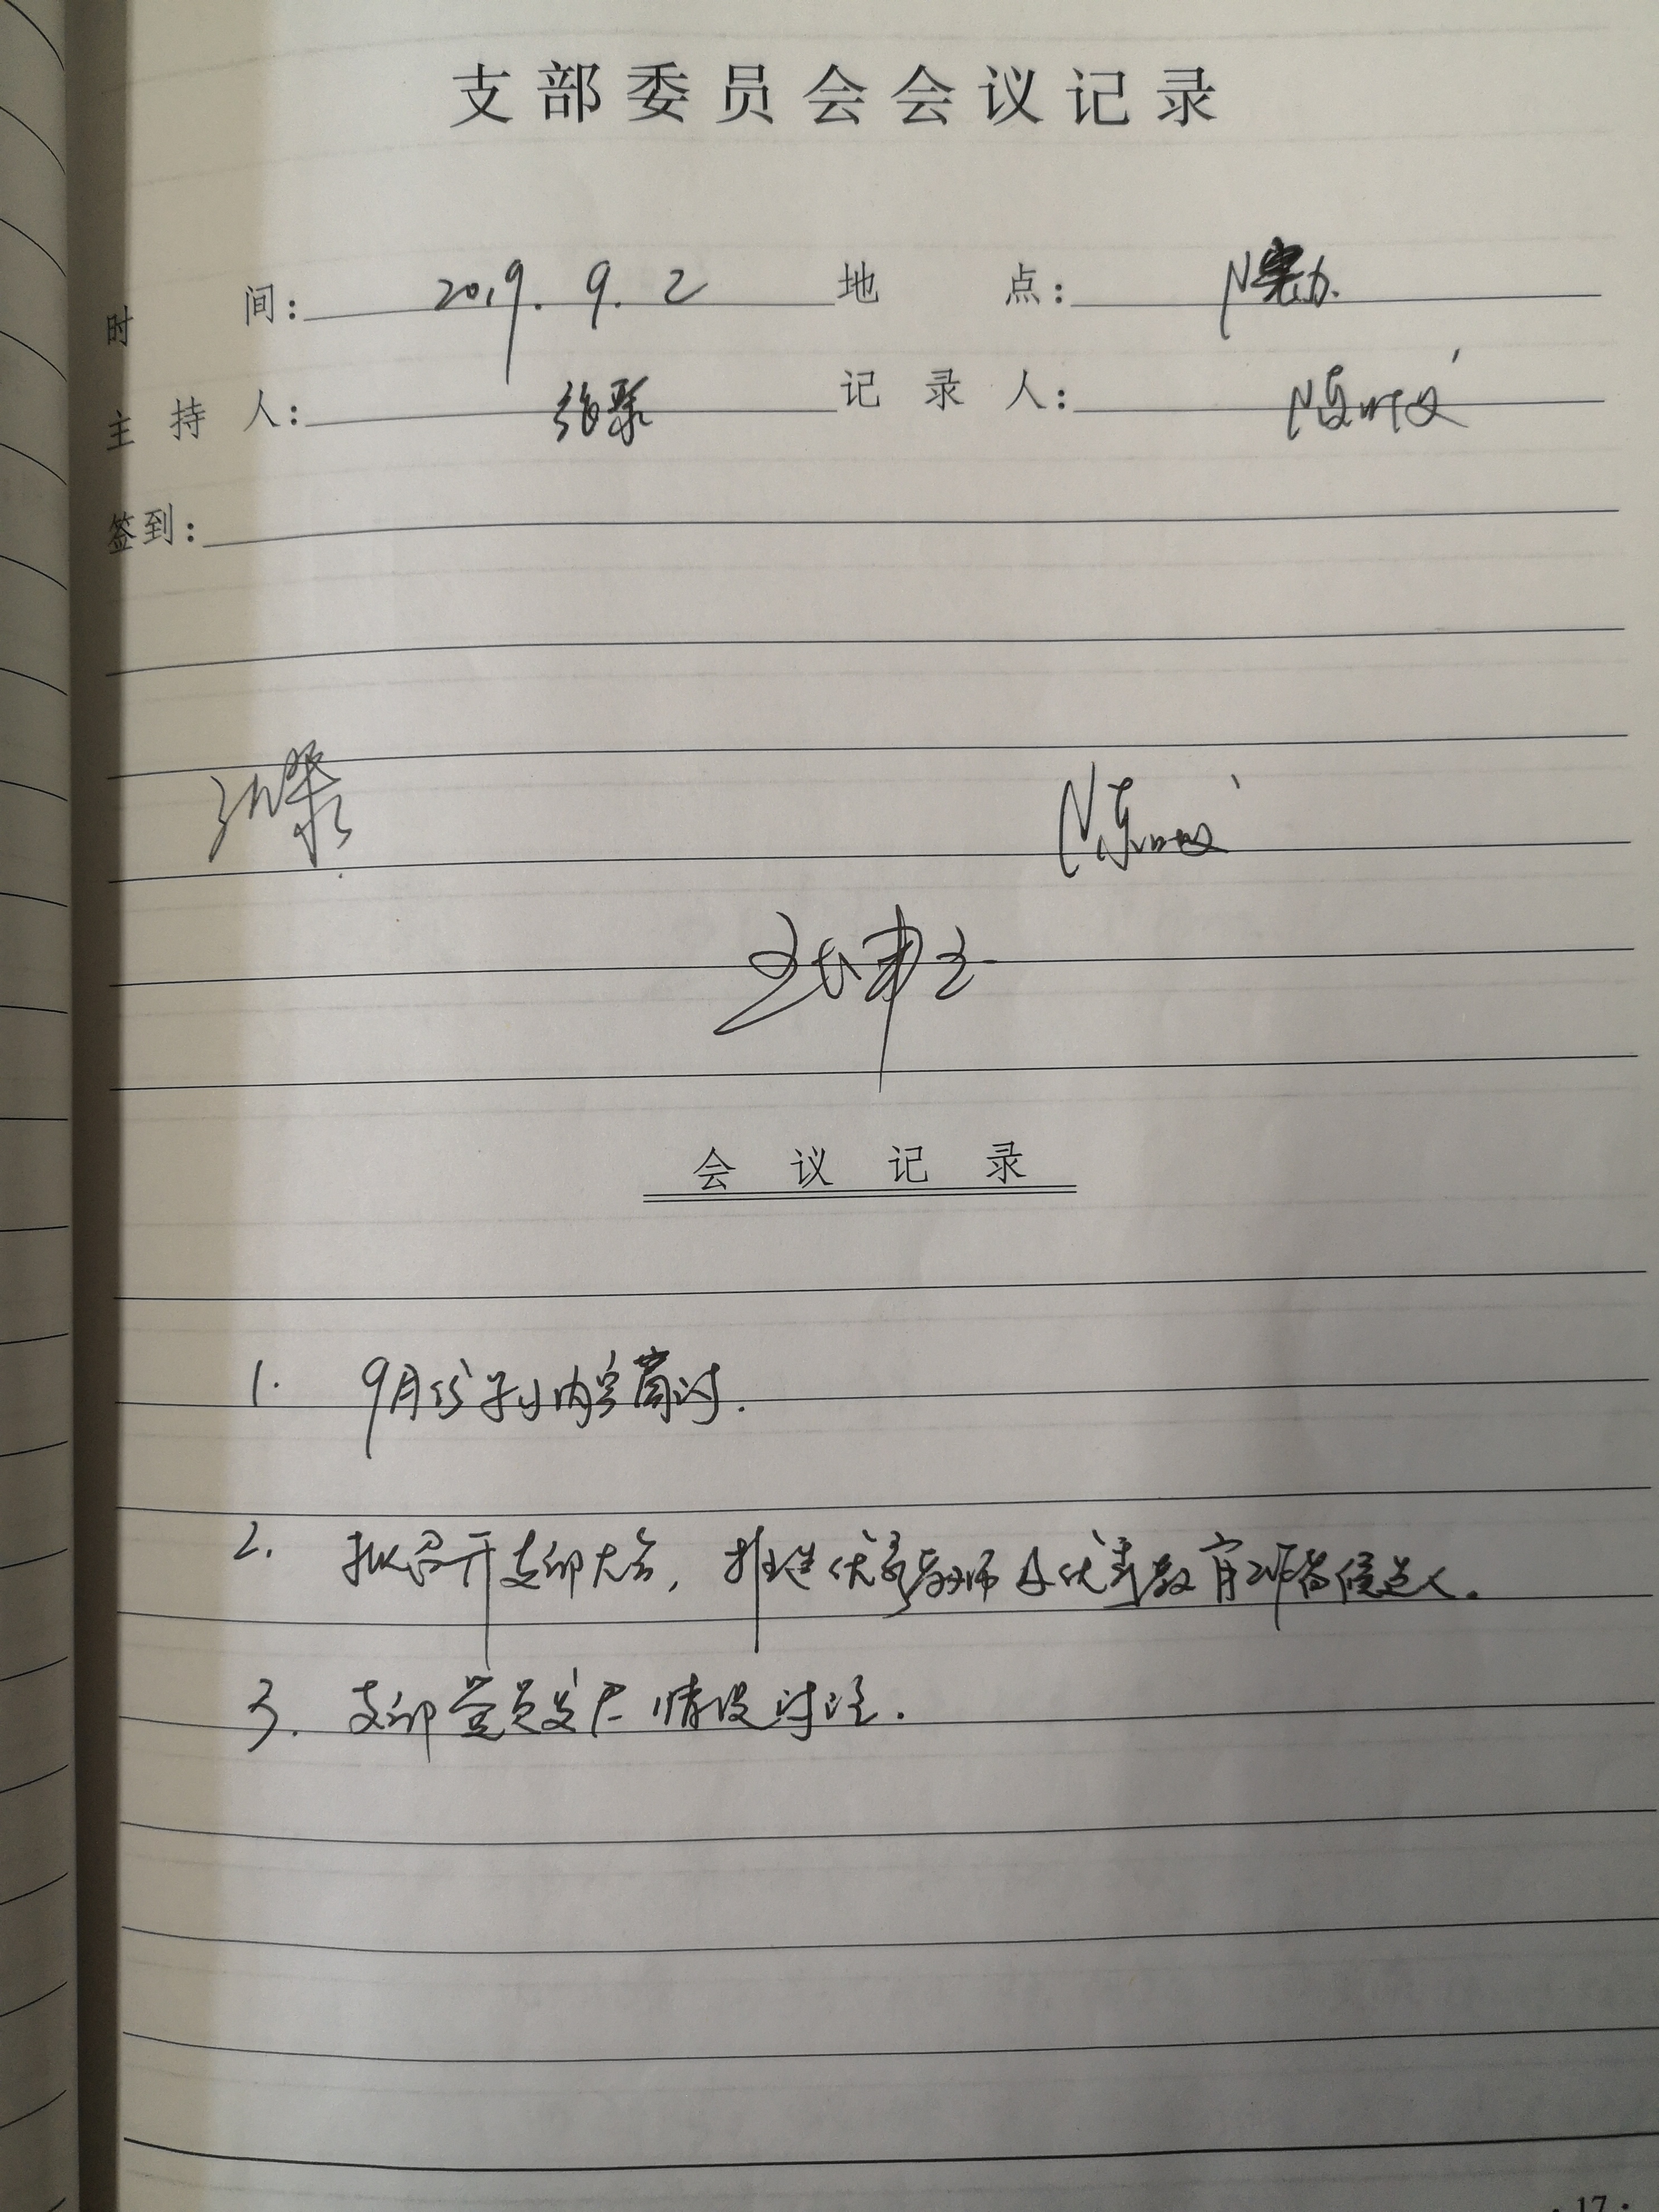 支部委员会会议记录
时间: 2019.9.2 地点: 院办
主持人: 张翠 记录人: 陈
签到:
陈
会议记录
1. 9月份学习内容商讨.
2. 拟召开支部大会, 推选优秀教师及优秀教育工作者候选人.
3. 支部党员发展情况讨论.
·17·